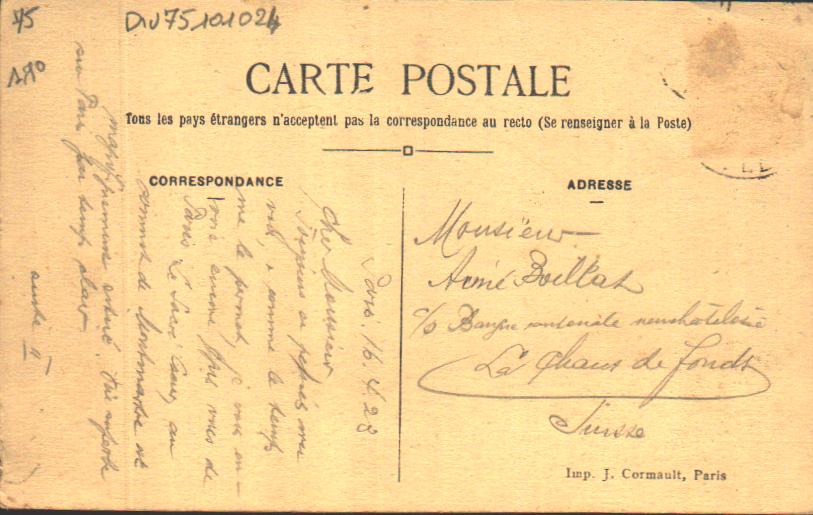 75
DIV75101024
180
CARTE POSTALE
Tous les pays étrangers n'acceptent pas la correspondance au recto (Se renseigner à la Poste)
CORRESPONDANCE
Paris, 16.4.28
Cher Monsieur
Toujours en
vous, & comme le temps
me le permet, je vous en-
voie encore vues de
Paris Le Sacré Coeur, au
sommet de Montmartre et
magnifiquement situé. Vue superbe
sur Paris par temps clair
suite II
ADRESSE
Monsieur
Aimé Boillat
c/o Banque cantonale neuchateloise
La Chaux de fonds
Suisse
Imp. J. Cormault, Paris